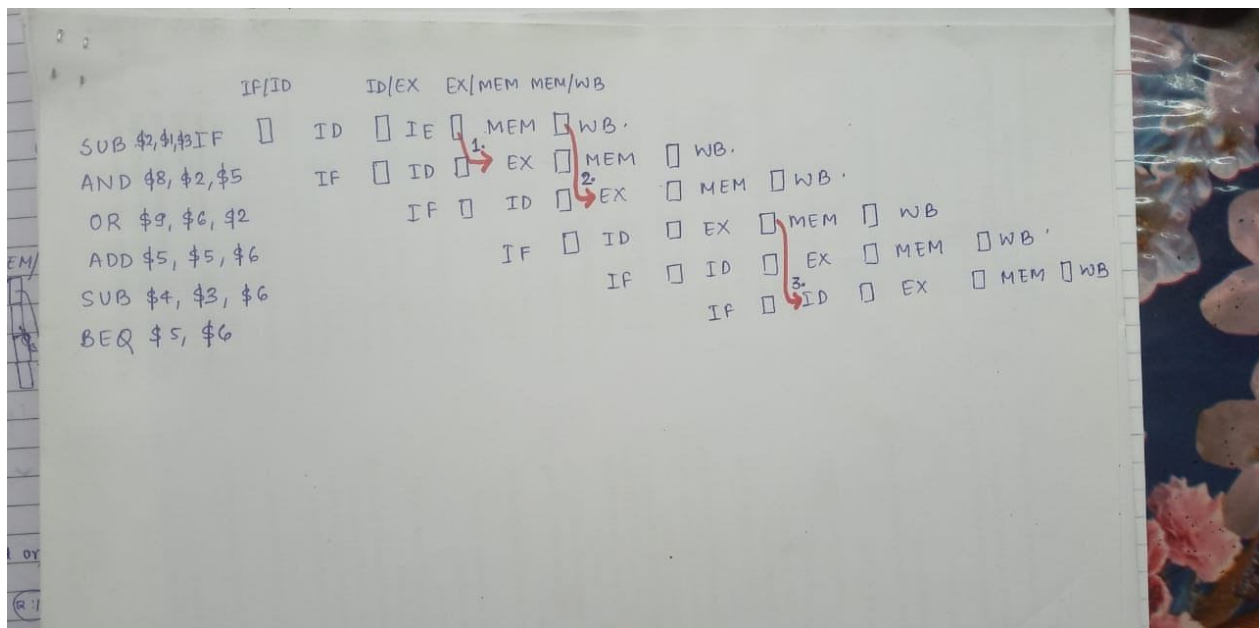 IF/ID ID/EX EX/MEM MEM/WB
SUB $2,$1,$3 IF ID IE MEM WB.
1.
AND $8, $2, $5 IF ID EX MEM WB.
2.
OR $9, $6, $2 IF ID EX MEM WB.
ADD $5, $5, $6 IF ID EX MEM WB
SUB $4, $3, $6 IF ID EX MEM WB
3.
BEQ $5, $6 IF ID EX MEM WB
EM/
or